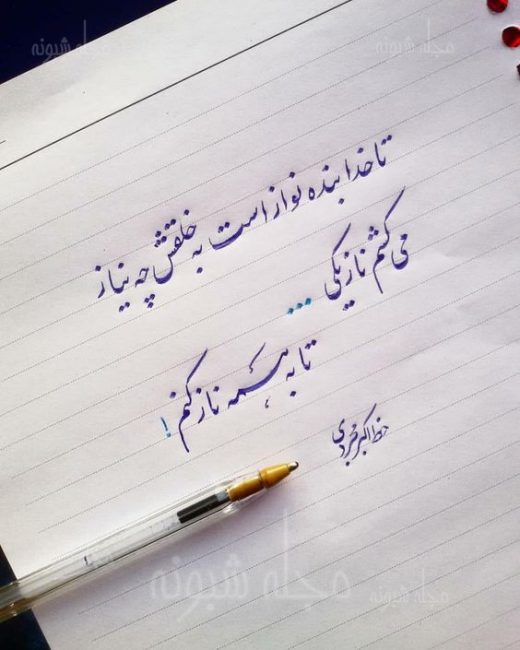 مجله شبونه
مجله شبونه
تا خدا بنده نواز است به خلقش چه نیاز
می کشم ناز یکی ...
تا به همه ناز کنم !
خط اکبر
مجله شبونه
مجله شبونه